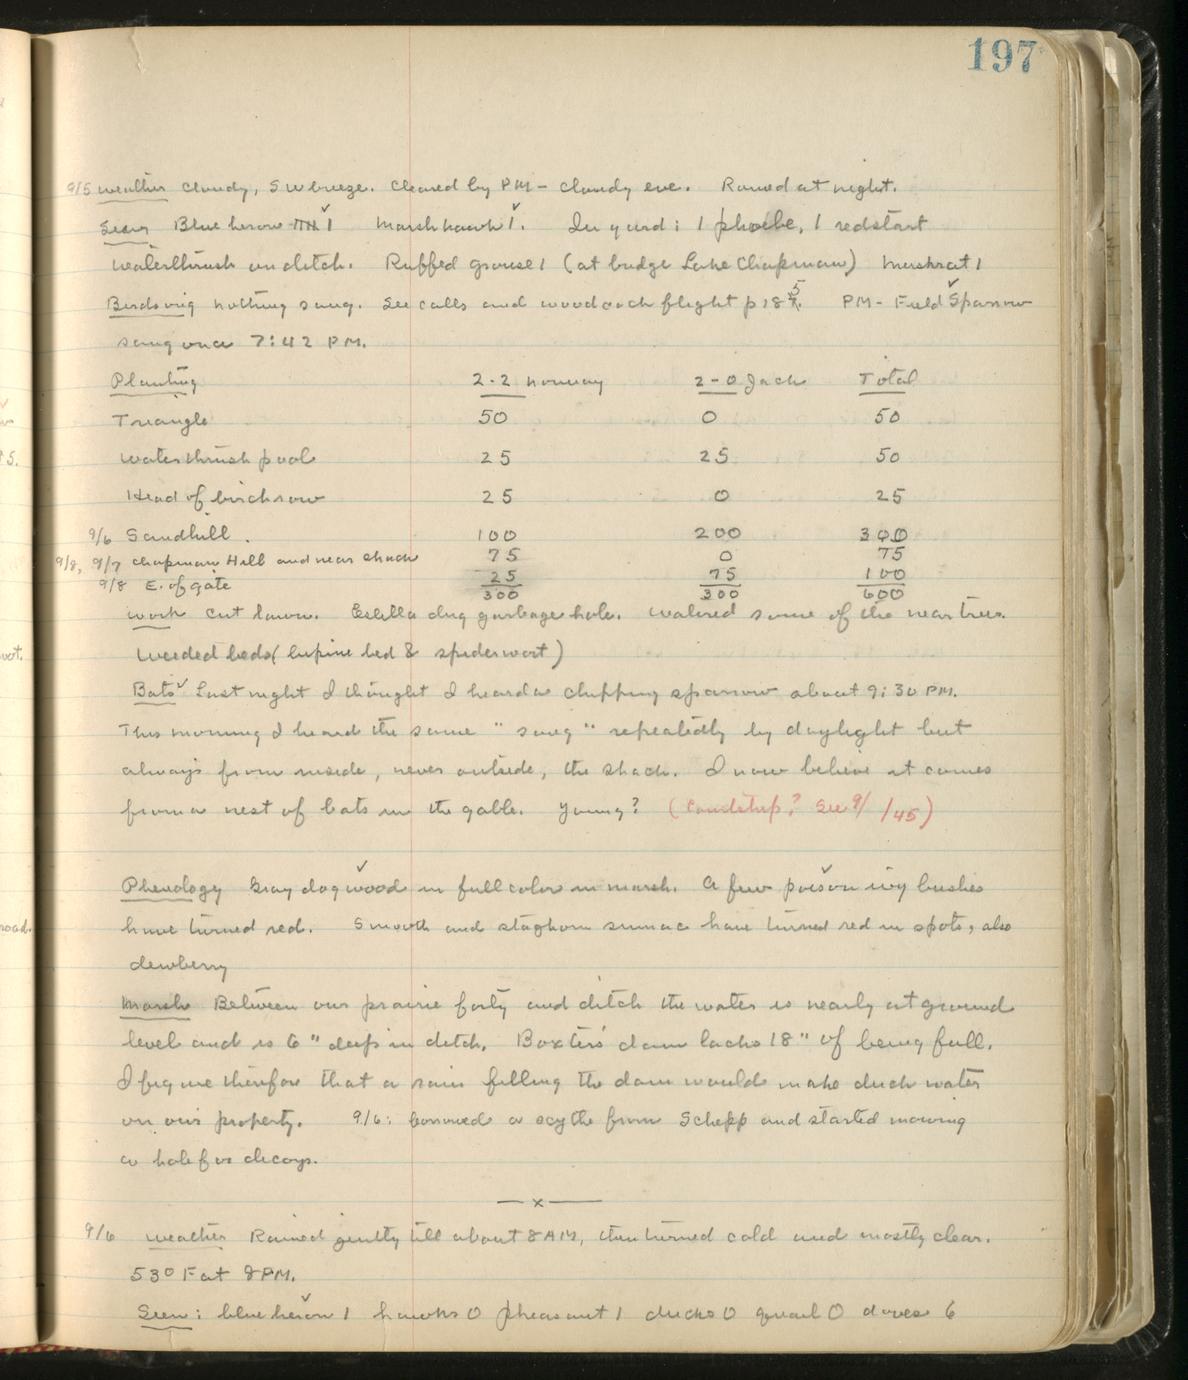 197
9/5 weather cloudy, SW breeze. Cleared by PM - cloudy eve. Rained at night.
Seen Blue heron 1 ✓ Marsh hawk 1 ✓. In yard: 1 phoebe, 1 redstart
Waterthrush on ditch. Ruffed grouse 1 (at bridge Lake Chapman) Muskrat 1
Birdsong nothing sang. See calls and woodcock flight p 185. PM - Field Sparrow ✓
sang once 7:42 PM.
Planting 2-2 Norway 2-0 Jack Total
Triangle 50 0 50
Waterthrush pool 25 25 50
Head of birchrow 25 0 25
9/6 Sandhill. 100 200 300
9/8, 9/7 Chapman Hill and near shack 75 0 75
9/8 E. of gate 25 75 100
300 300 600
Work Cut lawn. Estella dug garbage hole. Watered some of the near trees.
Weeded beds (lupine bed & spiderwort)
Bats ✓ Last night I thought I heard a chipping sparrow about 9:30 PM.
This morning I heard the same "song" repeatedly by daylight but
always from inside, never outside, the shack. I now believe it comes
from a nest of bats in the gable. Young? ( ? See 9/ /45)
Phenology Gray dogwood ✓ in full color in marsh. A few poison ivy ✓ bushes
have turned red. Smooth and staghorn sumac have turned red in spots, also
dewberry
Marsh Between our prairie forty and ditch the water is nearly at ground
level and is 6" deep in ditch. Baxters' dam lacks 18" of being full.
I figure therefore that a rain filling the dam would make duck water
on our property. 9/6: borrowed a scythe from Schepp and started mowing
a hole for decoys.
— x —
9/6 Weather Rained gently till about 8 AM, then turned cold and mostly clear.
53° F at 8 PM.
Seen: blue heron ✓ 1 hawks 0 pheasant 1 ducks 0 quail 0 doves 6